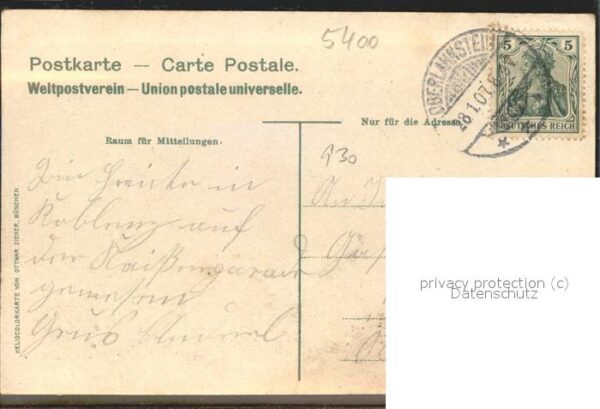 5400
Postkarte — Carte Postale.
Weltpostverein — Union postale universelle.
OBERLAHNSTEIN
28.1.07.
5 5
DEUTSCHES REICH
Nur für die Adresse
Raum für Mitteilungen.
930
Bin heute in
Koblenz auf
der Kaisergarade
gewesen
Gruß
HELIOCOLORKARTE VON OTTMAR ZIEHER, MÜNCHEN.
privacy protection (c)
Datenschutz